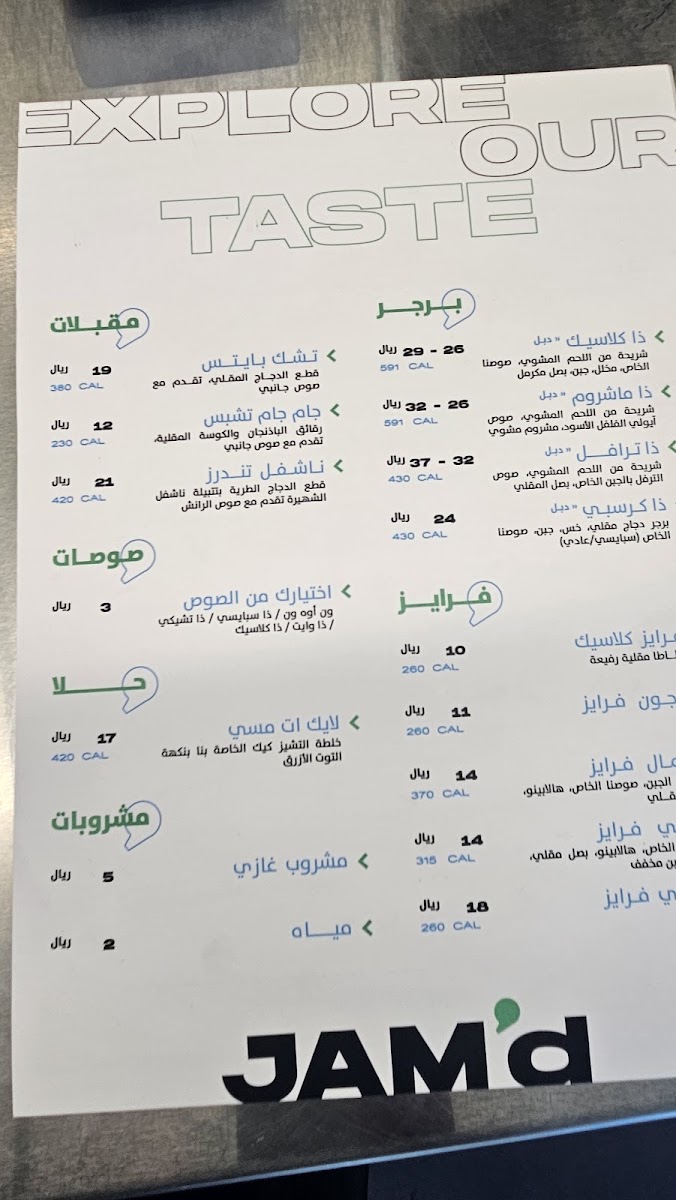 EXPLORE
OUR
TASTE
برجر
ذا كلاسيك « دبل
26 - 29 ريال
591 CAL
شريحة من اللحم المشوي، صوصنا
الخاص، مخلل، جبن، بصل مكرمل
ذا ماشروم « دبل
26 - 32 ريال
591 CAL
شريحة من اللحم المشوي، صوص
أيولي الفلفل الأسود، مشروم مشوي
ذا ترافل « دبل
32 - 37 ريال
430 CAL
شريحة من اللحم المشوي، صوص
الترفل بالجبن الخاص، بصل المقلي
ذا كرسبي « دبل
24 ريال
430 CAL
برجر دجاج مقلي، خس، جبن، صوصنا
الخاص (سبايسي/عادي)
فرايز
فرايز كلاسيك
10 ريال
260 CAL
مقلية رفيعة
فرايز
11 ريال
260 CAL
فرايز
14 ريال
370 CAL
الجبن، صوصنا الخاص، هالابينو،
فرايز
14 ريال
315 CAL
الخاص، هالابينو، بصل مقلي،
مخفف
فرايز
18 ريال
260 CAL
مقبلات
تشك بايتس
19 ريال
380 CAL
قطع الدجاج المقلي، تقدم مع
صوص جانبي
جام جام تشبس
12 ريال
230 CAL
رقائق الباذنجان والكوسة المقلية،
تقدم مع صوص جانبي
ناشفل تندرز
21 ريال
420 CAL
قطع الدجاج الطرية بتتبيلة ناشفل
الشهيرة تقدم مع صوص الرانش
صوصات
اختيارك من الصوص
3 ريال
ون أوه ون / ذا سبايسي / ذا تشيكي
/ ذا وايت / ذا كلاسيك
حلا
لايك ات مسي
17 ريال
420 CAL
خلطة التشيز كيك الخاصة بنا بنكهة
التوت الأزرق
مشروبات
مشروب غازي
5 ريال
مياه
2 ريال
JAM'd